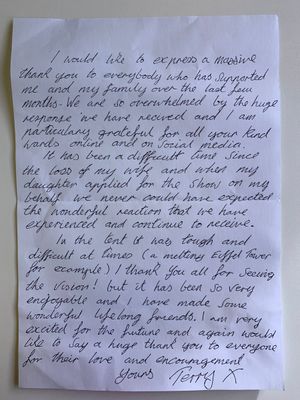 I would like to express a massive
thank you to everybody who has supported
me and my family over the last few
months. We are so overwhelmed by the huge
response we have recived and I am
particulary grateful for all your kind
words online and on social media.
It has been a difficult time since
the loss of my wife and when my
daughter applied for the show on my
behalf we never could have expected
the wonderful reaction that we have
experienced and continue to receive.
In the tent it was tough and
difficult at times (a melting Eiffel Tower
for example) I thank you all for seeing
the vision! but it has been so very
enjoyable and I have made some
wonderful lifelong friends. I am very
excited for the future and again would
like to say a huge thank you to everyone
for their love and encouragement
Yours Terry X